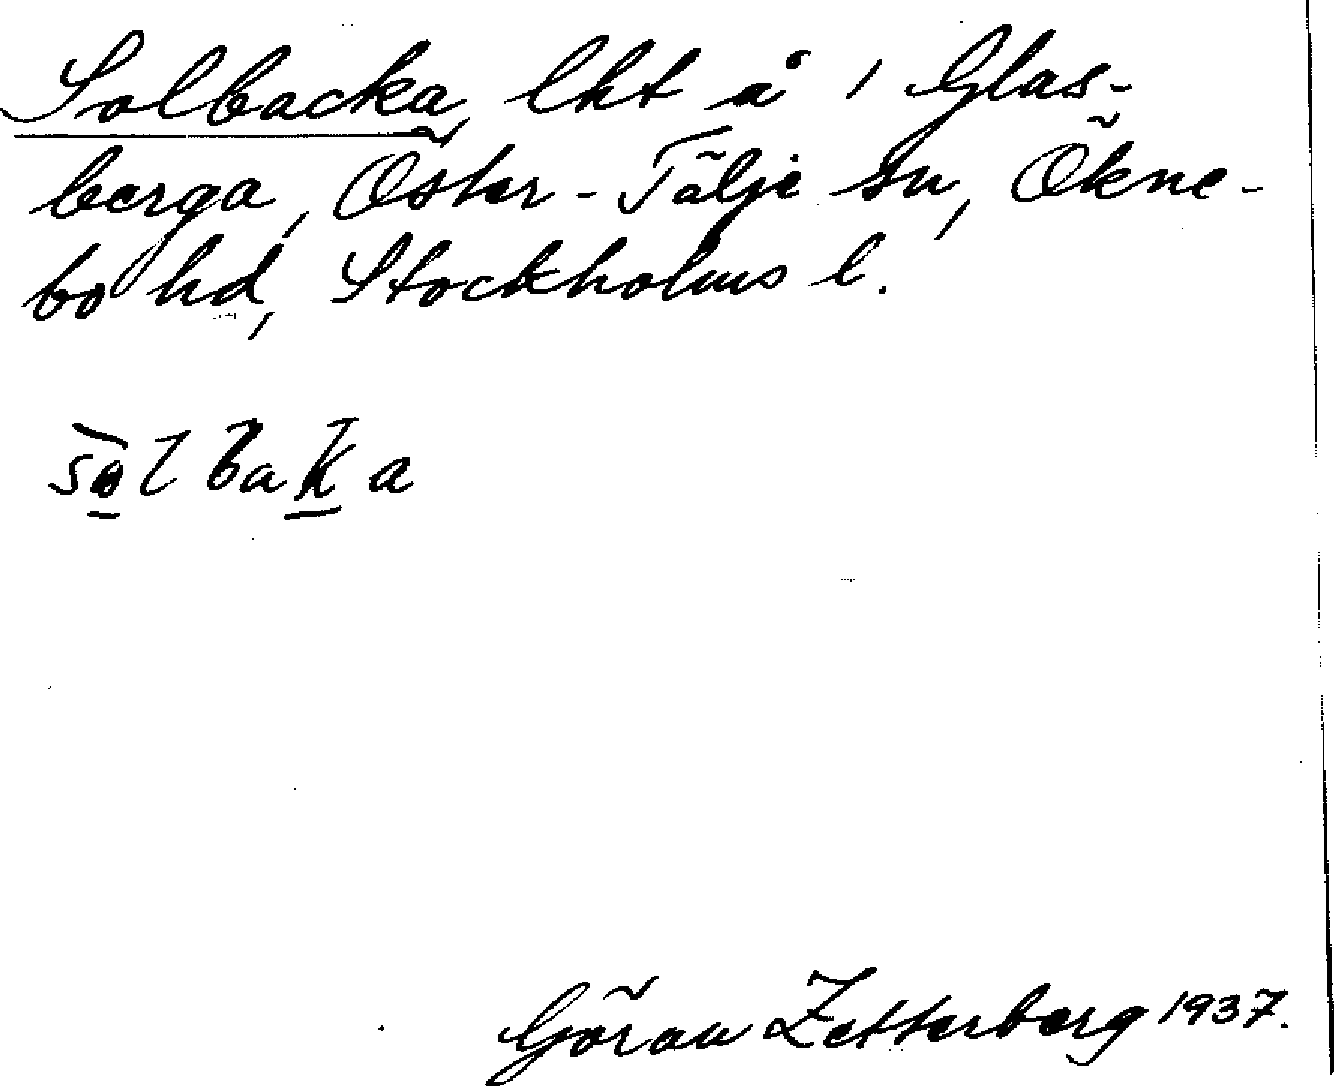 Solbacka, lht å 1 Glas-
berga, Öster-Tälje sn, Ökne-
bo hd, Stockholms l.
sòlbaka
Göran Zetterberg 1937.